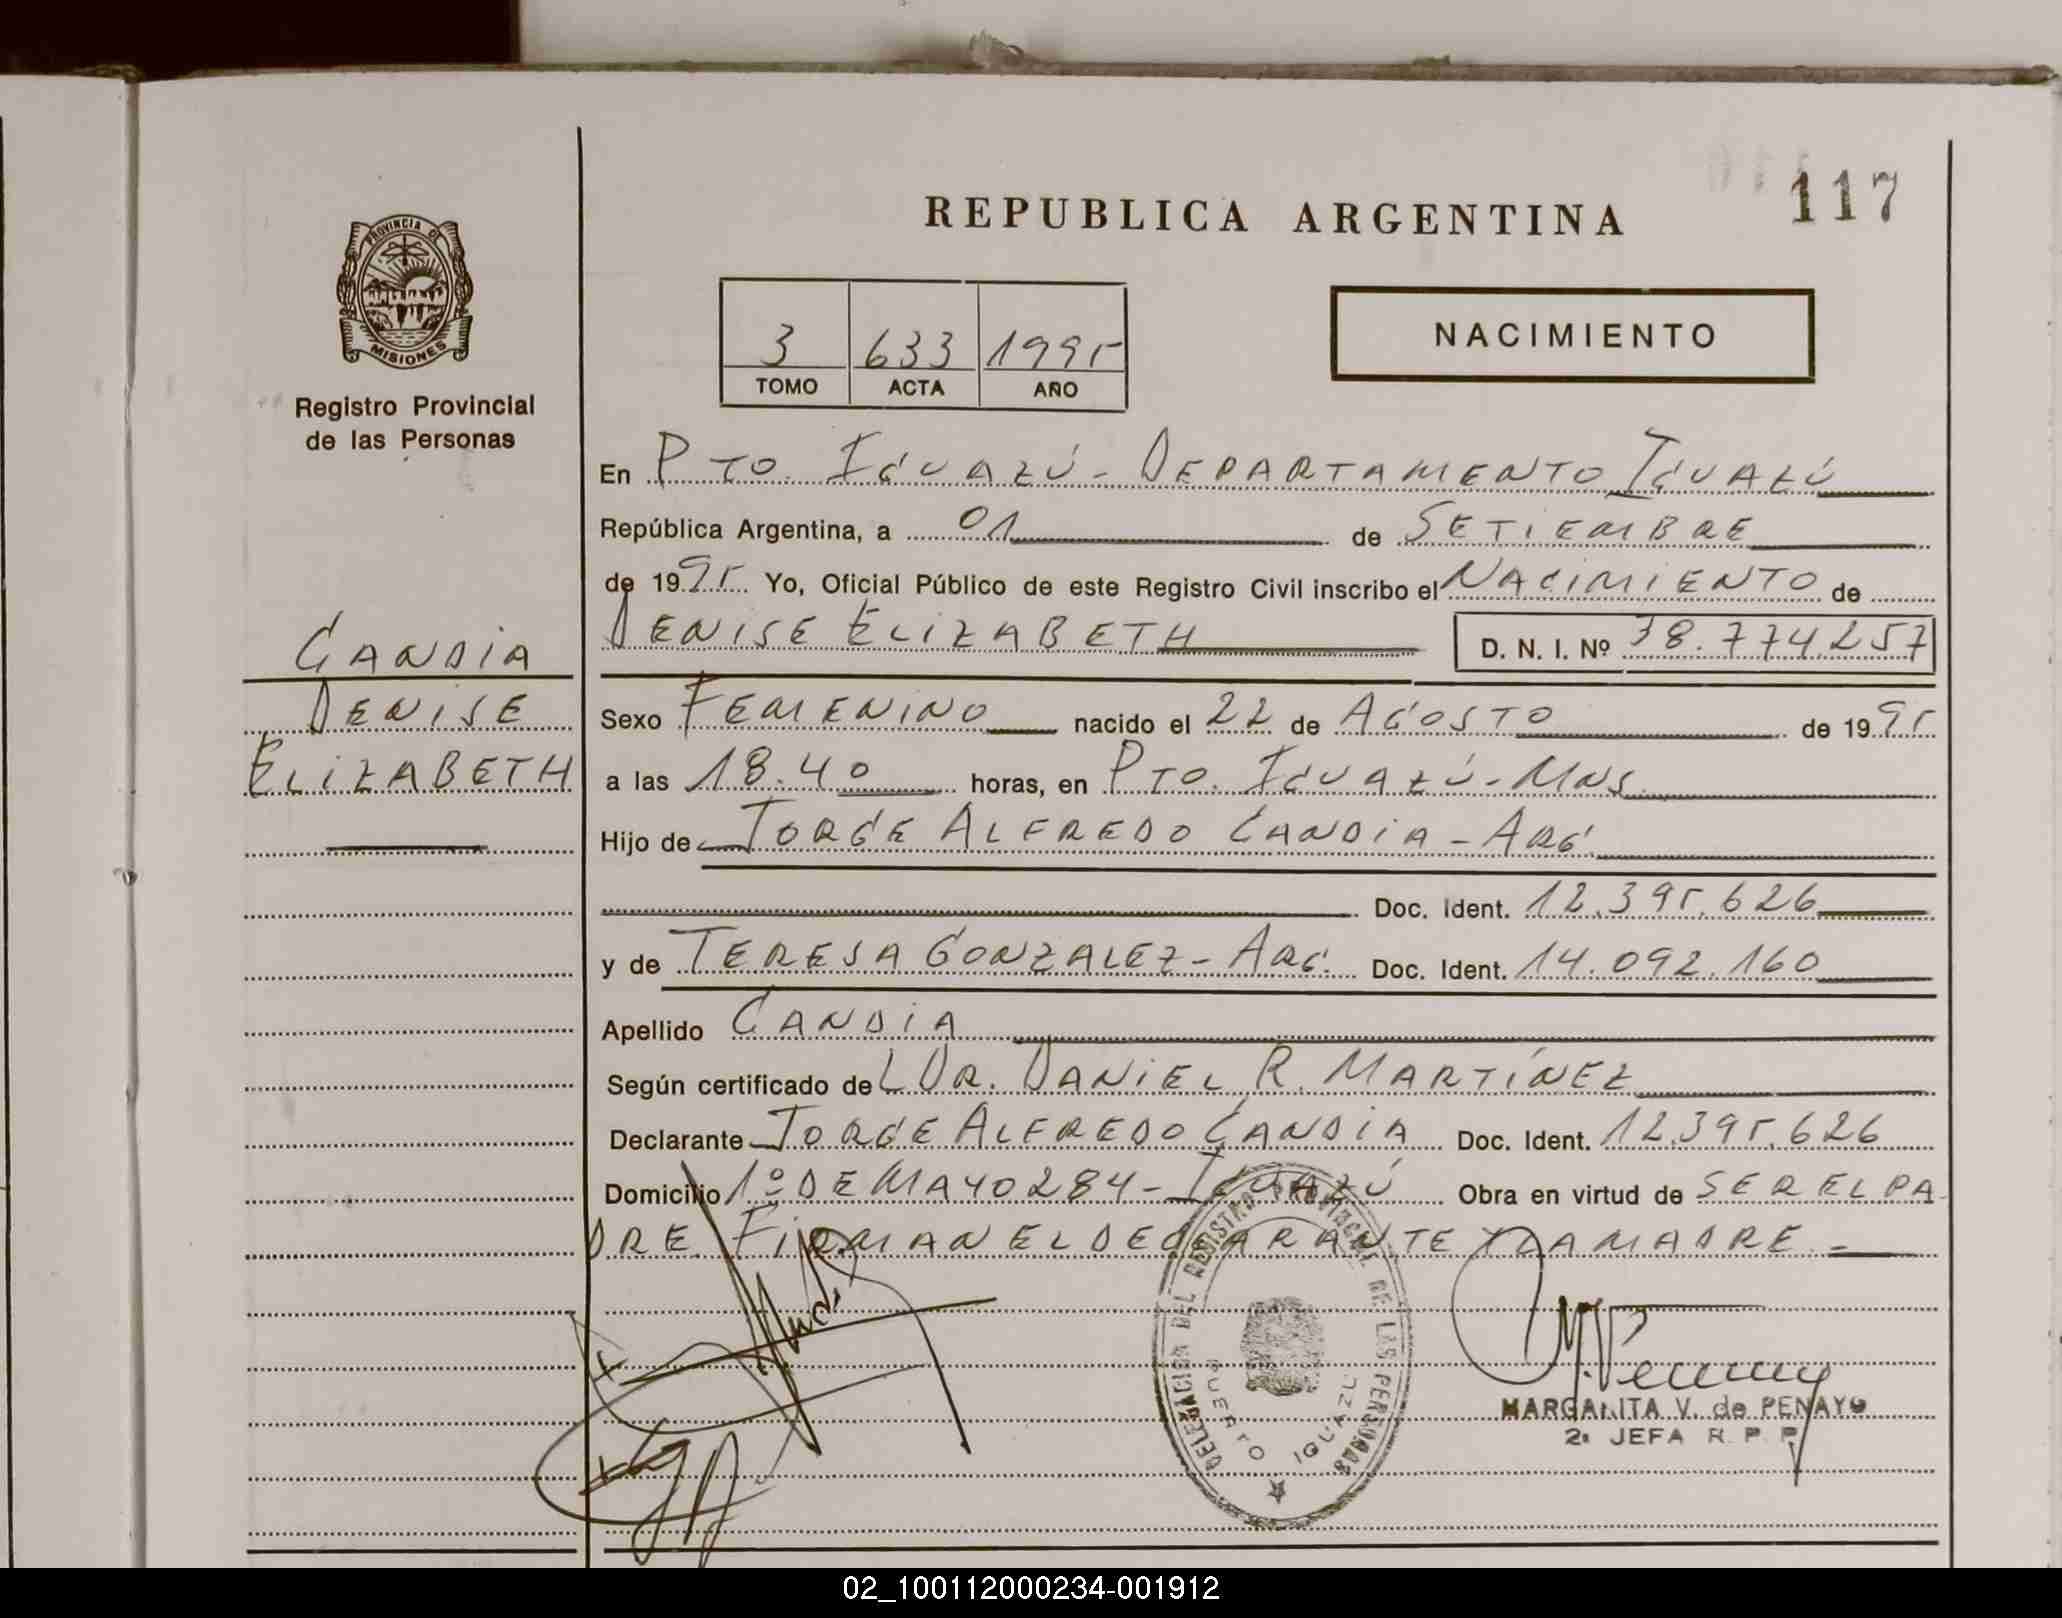 117
REPUBLICA ARGENTINA
PROVINCIA DE
MISIONES
Registro Provincial
de las Personas
3 633 1995
TOMO ACTA AÑO
NACIMIENTO
En PTO. IGUAZÚ - DEPARTAMENTO IGUAZÚ
República Argentina, a 01 de SETIEMBRE
de 1995 Yo, Oficial Público de este Registro Civil inscribo el NACIMIENTO de
DENISE ELIZABETH D. N. I. Nº 38.774.257
CANDIA
DENISE
ELIZABETH
Sexo FEMENINO nacido el 22 de AGOSTO de 1995
a las 18.40 horas, en PTO. IGUAZÚ - MNS.
Hijo de JORGE ALFREDO CANDIA - ARG.
Doc. Ident. 12.395.626
y de TERESA GONZALEZ - ARG. Doc. Ident. 14.092.160
Apellido CANDIA
Según certificado del DR. DANIEL R. MARTÍNEZ
Declarante JORGE ALFREDO CANDIA Doc. Ident. 12.395.626
Domicilio 1º DE MAYO 284 - IGUAZÚ Obra en virtud de SER EL PA-
DRE. FIRMAN EL DECLARANTE Y LA MADRE. -
DELEGACION DEL REGISTRO PROVINCIAL DE LAS PERSONAS
PUERTO IGUAZU
MARGARITA V. de PENAYO
2ª JEFA R. P. P.
02_100112000234-001912